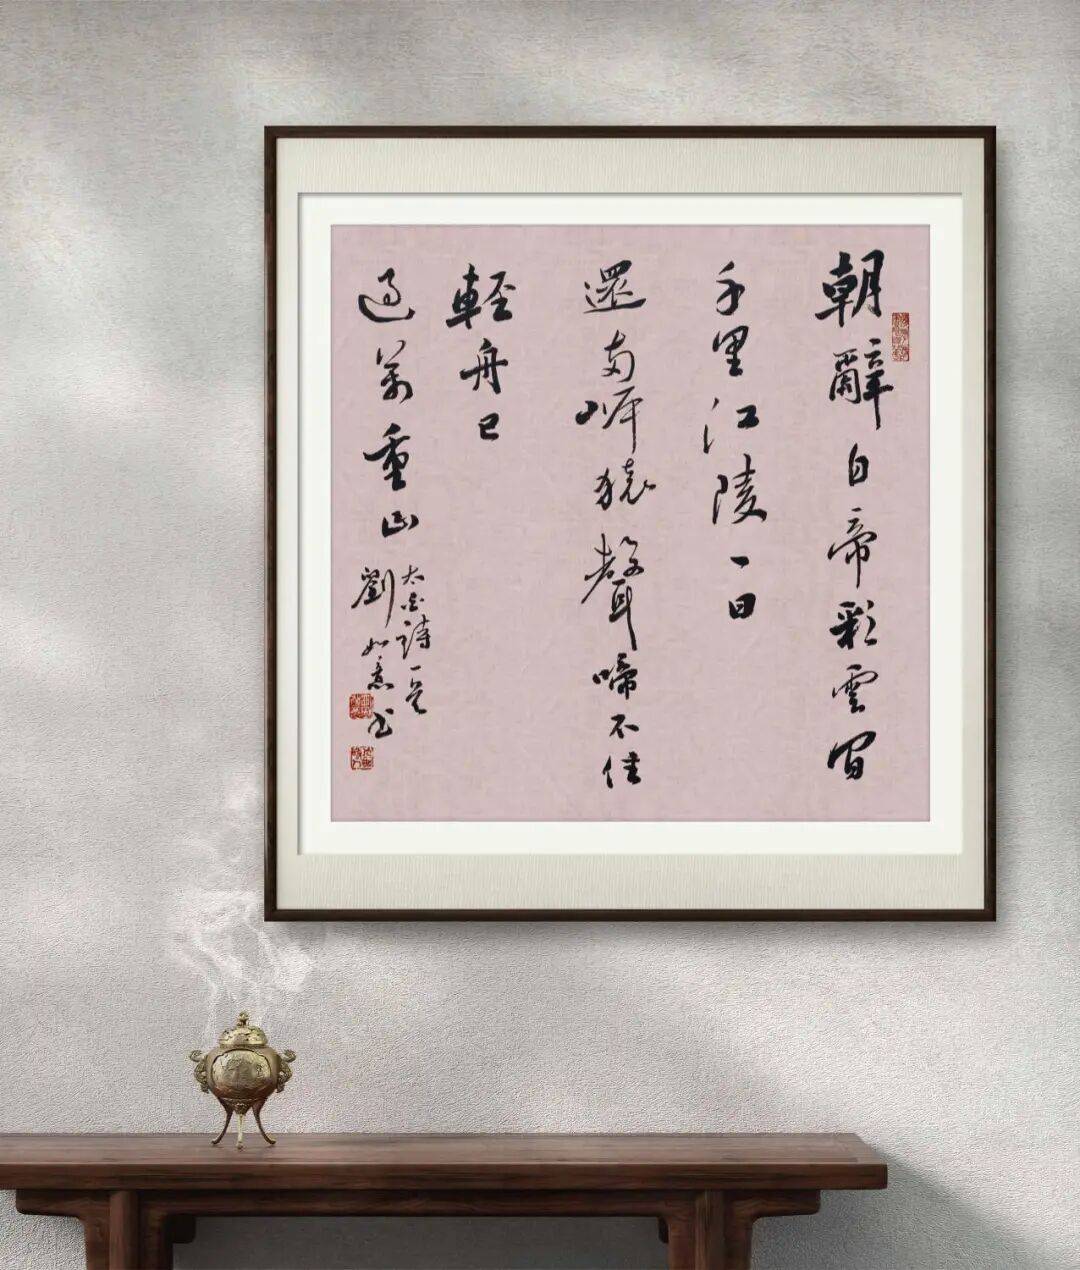 朝辭白帝彩雲間
千里江陵一日
還兩岸猿聲啼不住
輕舟已
過萬重山
太白詩一首
劉如意書